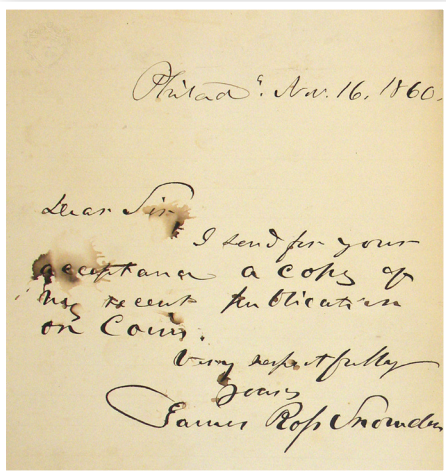 Philad^a. Nov. 16, 1860.
Dear Sir
I send for your
acceptance a copy of
my recent publication
on Coins.
Very respectfully
Yours
James Ross Snowden